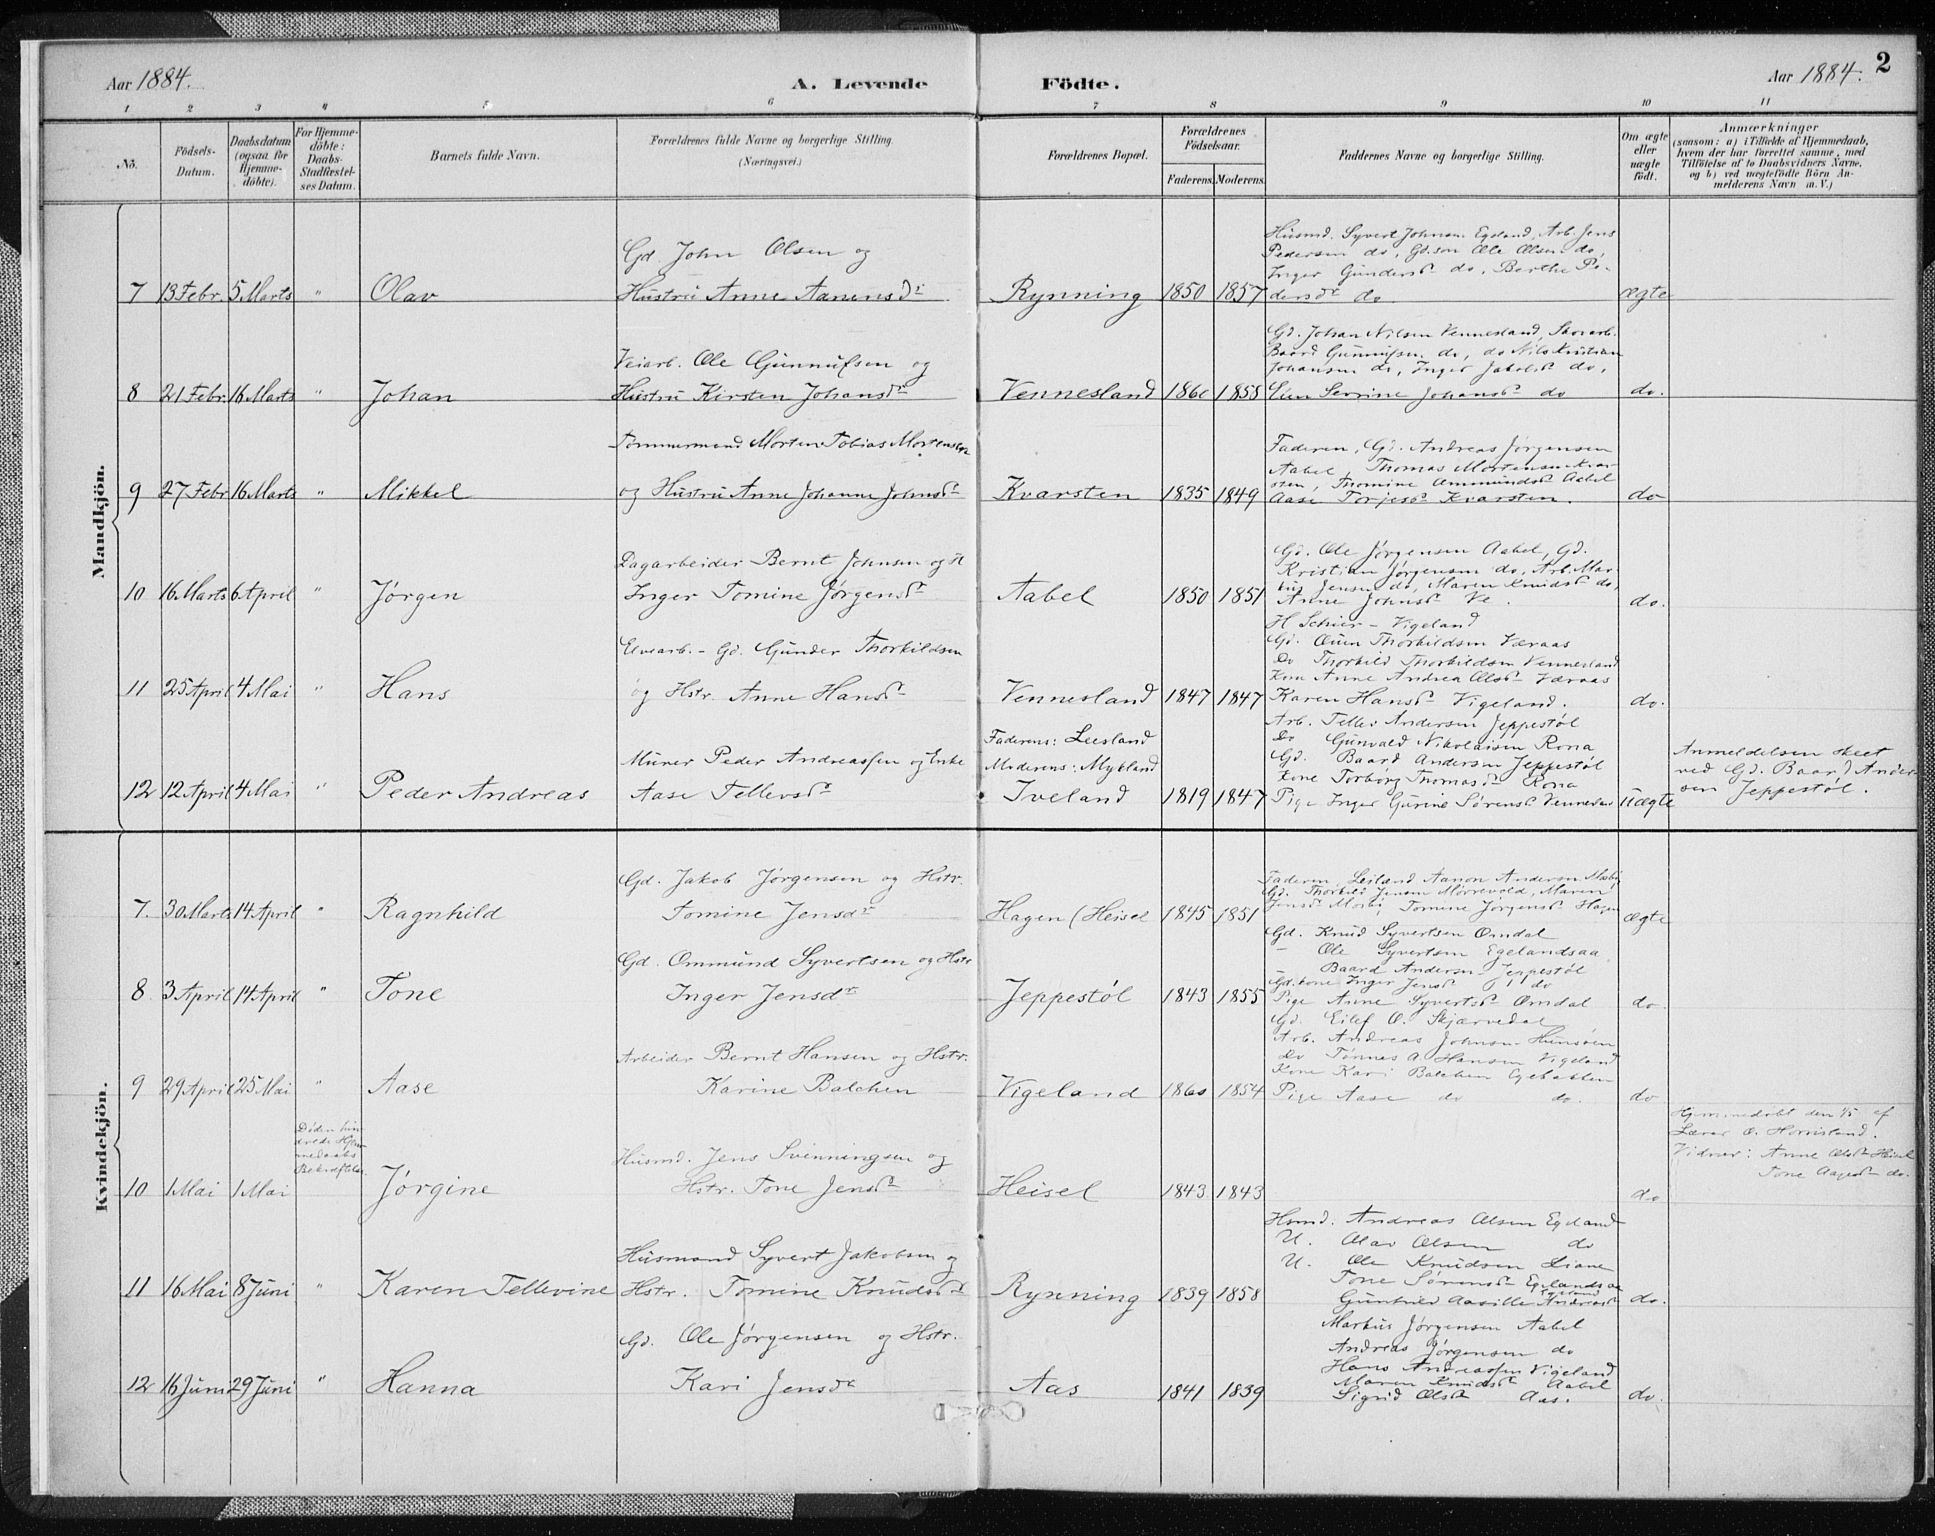 Aar 1884.
A. Levende
Födte.
Aar 1884.
2
1 2 3 4 5 6 7 8 9 10 11
No.
Födsels-Datum.
Daabsdatum (ogsaa for Hjemme-döbte).
For Hjemme-döbte: Daabs-Stadfæstel-ses Datum.
Barnets fulde Navn.
Forældrenes fulde Navne og borgerlige Stilling. (Næringsvei.)
Forældrenes Bopæl.
Forældrenes Födselsaar.
Faderens. Moderens.
Faddernes Navne og borgerlige Stilling.
Om ægte eller uægte födt.
Anmærkninger
(saasom: a) i Tilfælde af Hjemmedaab,
hvem der har forrettet samme, med
Tilföielse af to Daabsvidners Navne,
og b) ved uægtefödte Börn An-
melderens Navn m. V.)
Mandkjön.
Gd. John Olsen og
Husmd. Syvert Johnsen Egeland, Arb. Jens
Pedersen do, Gd.søn Ole Olsen do,
Inger Gundersdr do, Berthe Pe-
7 13 Febr. 5 Marts " Olav Hustru Anne Aanensdr Rynning 1850 1857 dersdr do ægte
Veiarb. Ole Gunnufsen og
Gd. Johan Nilsen Vennesland,
Baard Gunnufsen do, do Nils Kristian
Johansen do, Inger Jakobsdr do,
8 21 Febr. 16 Marts " Johan Hustru Kirsten Johansdr Vennesland 1860 1858 Severine Johansdr do do.
Tømmermand Morten Tobias Mortensen
Faderen, Gd. Andreas Jørgensen
Aabel, Thomas Mortensen Kvar-
sten, Thomine Ommundsdr Aabel
9 27 Febr 16 Marts " Mikkel og Hustru Anne Johanne Johnsdr Kvarsten 1835 1849 Aase Torjesdr Kvarsten. do
Dagarbeider Bernt Johnsen og H
Gd. Ole Jørgensen Aabel, Gd.
Kristian Jørgensen do, Arb. Mar-
kus Jensen do, Maren Knudsdr do,
10 16 Marts 6 April " Jørgen Inger Tomine Jørgensdr Aabel 1850 1851 Anne Johnsdr Ve. do.
Elvearb. - Gd. Gunder Thorkildsen
H Schier - Vigeland
Gd. Thorkildsen Væraas
Do Thorkild Thorkildsen Vennesland
Kone Anne Andrea Olsdr Væraas
11 25 April 4 Mai " Hans og Hstr. Anne Hansdr Vennesland 1847 1847 Karen Hansdr Vigeland. do.
Murer Peder Andreassen og Enke
Faderens: Leesland
Moderens: Mykland
Arb. Tellef Andersen Jeppestøl
Do Gunvald Nikolaisen Rona
Gd. Baard Andersen Jeppestøl
Kone Torborg Thomasdr Rona
Anmeldelsen skeet
ved Gd. Baard Ander-
sen Jeppestøl.
12 12 April 4 Mai " Peder Andreas Aase Tellefsdr Iveland 1819 1847 Pige Inger Gurine Sørensdr Vennesland Uægte
Kvindekjön.
Gd. Jakob Jørgensen og Hstr.
Faderen, Aanon Andersen
Gd. Thorkild Jensen Maren
7. 30 Marts 14 April " Ragnhild Tomine Jensdr Hagen (Heisel 1845 1851 Jensdr Tomine Jørgensdr Hagen ægte
Gd. Ommund Syvertsen og Hstr
Gd. Knud Syvertsen Omdal
- Ole Syvertsen Egelandsaa
Baard Andersen Jeppestøl
Gd.kone Inger Jensdr do
8 3 April 14 April " Tone Inger Jensdr Jeppestøl 1843 1855 Pige Anne Syvertsdr Omdal do
Arbeider Bernt Hansen og Hstr.
Gd. Eilef O. Skjærvedal
Arb. Andreas Johnsen Hunsøen
Do Tønnes A. Hansen Vigeland
Kone Kari Balchen
9 29 April 25 Mai " Aase Karine Balchen Vigeland 1860 1854 Pige Aase do do. do
Døden hin-
drede Hjem-
medaabs
Bekræftelse
Husmd. Jens Svenningsen og
Hjemmedøbt den 1/5 af
Lærer O.
Vidner: Anne Olsdr Heisel
Tone Aagesdr do.
10 1 Mai 1 Mai Jørgine Hstr. Tone Jensdr Heisel 1843 1843 do
Husmand Syvert Jakobsen og
Hsmd. Andreas Olsen Egeland
U. Olav Olsen do
U. Ole Knudsen Liane
Tone Sørensdr Egelandsaa
11 16 Mai 8 Juni " Karen Tellevine Hstr. Tomine Knudsdr Rynning 1839 1858 Gunhild Aasille Andreasdr Egeland do.
Gd. Ole Jørgensen og Hstr.
Markus Jørgensen Aabel
Andreas Jørgensen do
Hans Andreassen Vigeland
Maren Knudsdr Aabel
12 16 Juni 29 Juni " Hanna Kari Jensdr Aas 1841 1839 Sigrid Olsdr Aas. do.